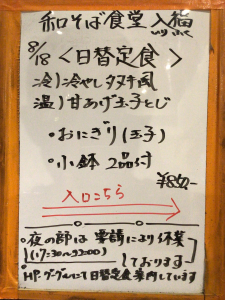 和そば食堂 入福
8/18 <日替定食>
冷)冷やしタヌキ風
温)甘あげ玉子とじ
・おにぎり(玉子)
・小鉢 2品付
¥850-
入口こちら
・夜の部は 要請により休業
(17:30~22:00)
しております
・HP.グーグルにて日替定食案内しています